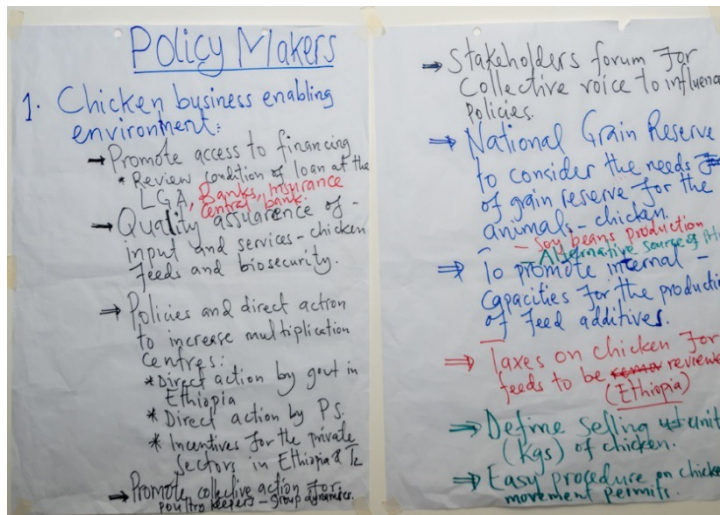 Policy Makers
1. Chicken business enabling
environment:
→ Promote access to financing
* Review condition of loan at the
LGA, Banks, Insurance
central bank.
→ Quality assurance of -
input and services - chicken
feeds and biosecurity.
⇒ Policies and direct action
to increase multiplication
centres:
* Direct action by govt in
Ethiopia
* Direct action by PS.
* Incentives for the private
sectors in Ethiopia & Tz
→ Promote collective action for
poultry keepers - group dynamics.
→ Stakeholders forum for
collective voice to influence
policies.
⇒ National Grain Reserve
to consider the needs
of grain reserve for the
animals - chicken.
- Soy beans production
- Alternative source of
⇒ To promote internal -
capacities for the production
of feed additives.
⇒ Taxes on chicken for
feeds to be reviewe
(Ethiopia)
⇒ Define selling unit
(kgs) of chicken.
⇒ Easy procedure on chicke
movement permits.